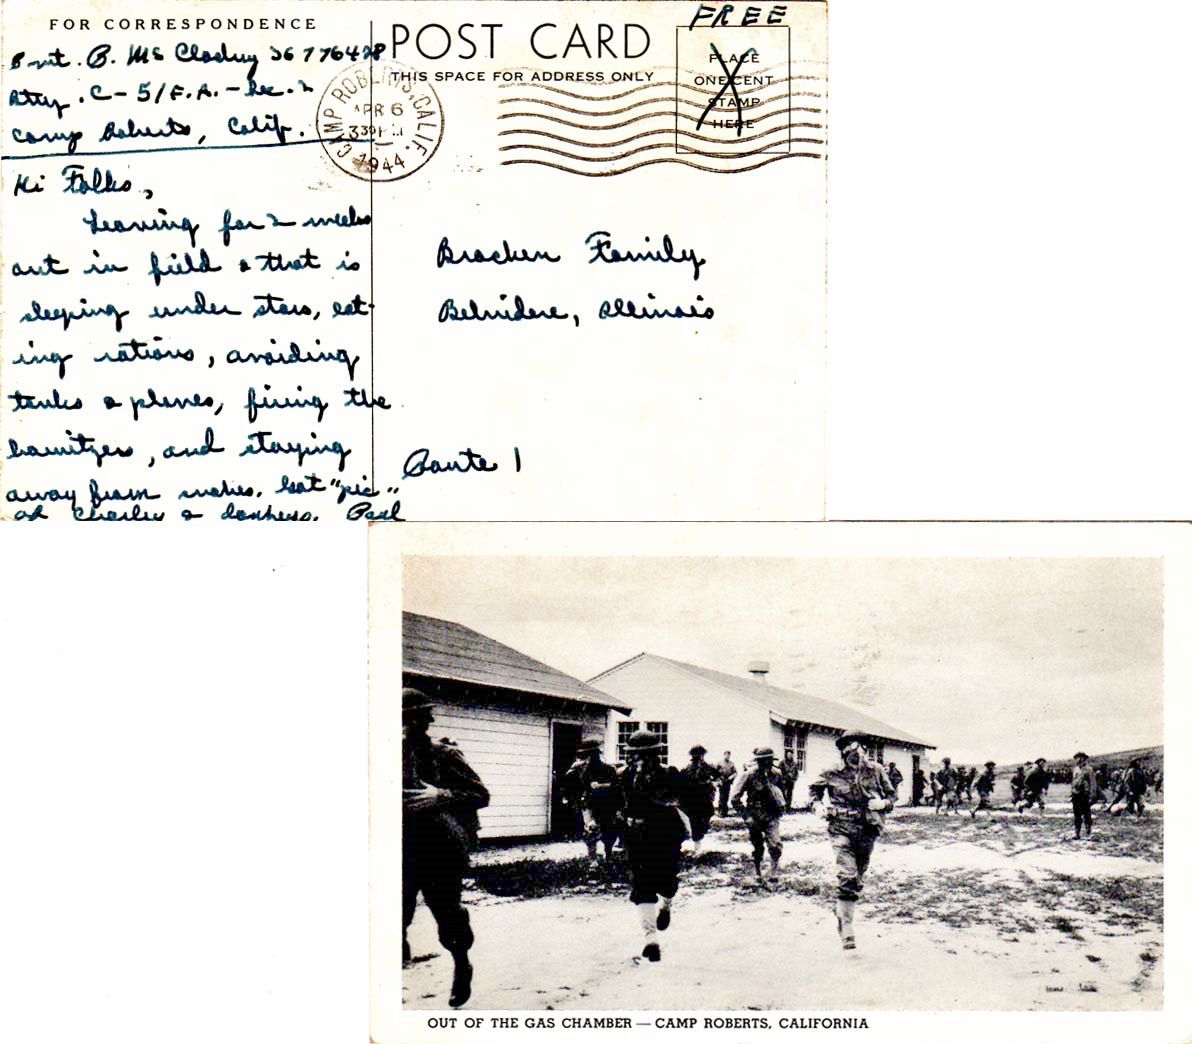 FOR CORRESPONDENCE
Pvt. P. Mc Closkey 36776428
Btry. C - 51 F.A. - Rec. 2
Camp Roberts, Calif.
Hi Folks,
Leaving for 2 weeks
out in field & that is
sleeping under stars, eat-
ing rations, avoiding
tanks & planes, firing the
howitzers, and staying
away from snakes. Got "pic"
of Charley & donkeys. Paul
POST CARD
THIS SPACE FOR ADDRESS ONLY
FREE
PLACE
ONE CENT
STAMP
HERE
CAMP ROBERTS, CALIF.
APR 6
330PM
1944
Bracken Family
Belvidere, Illinois
Route 1
OUT OF THE GAS CHAMBER — CAMP ROBERTS, CALIFORNIA